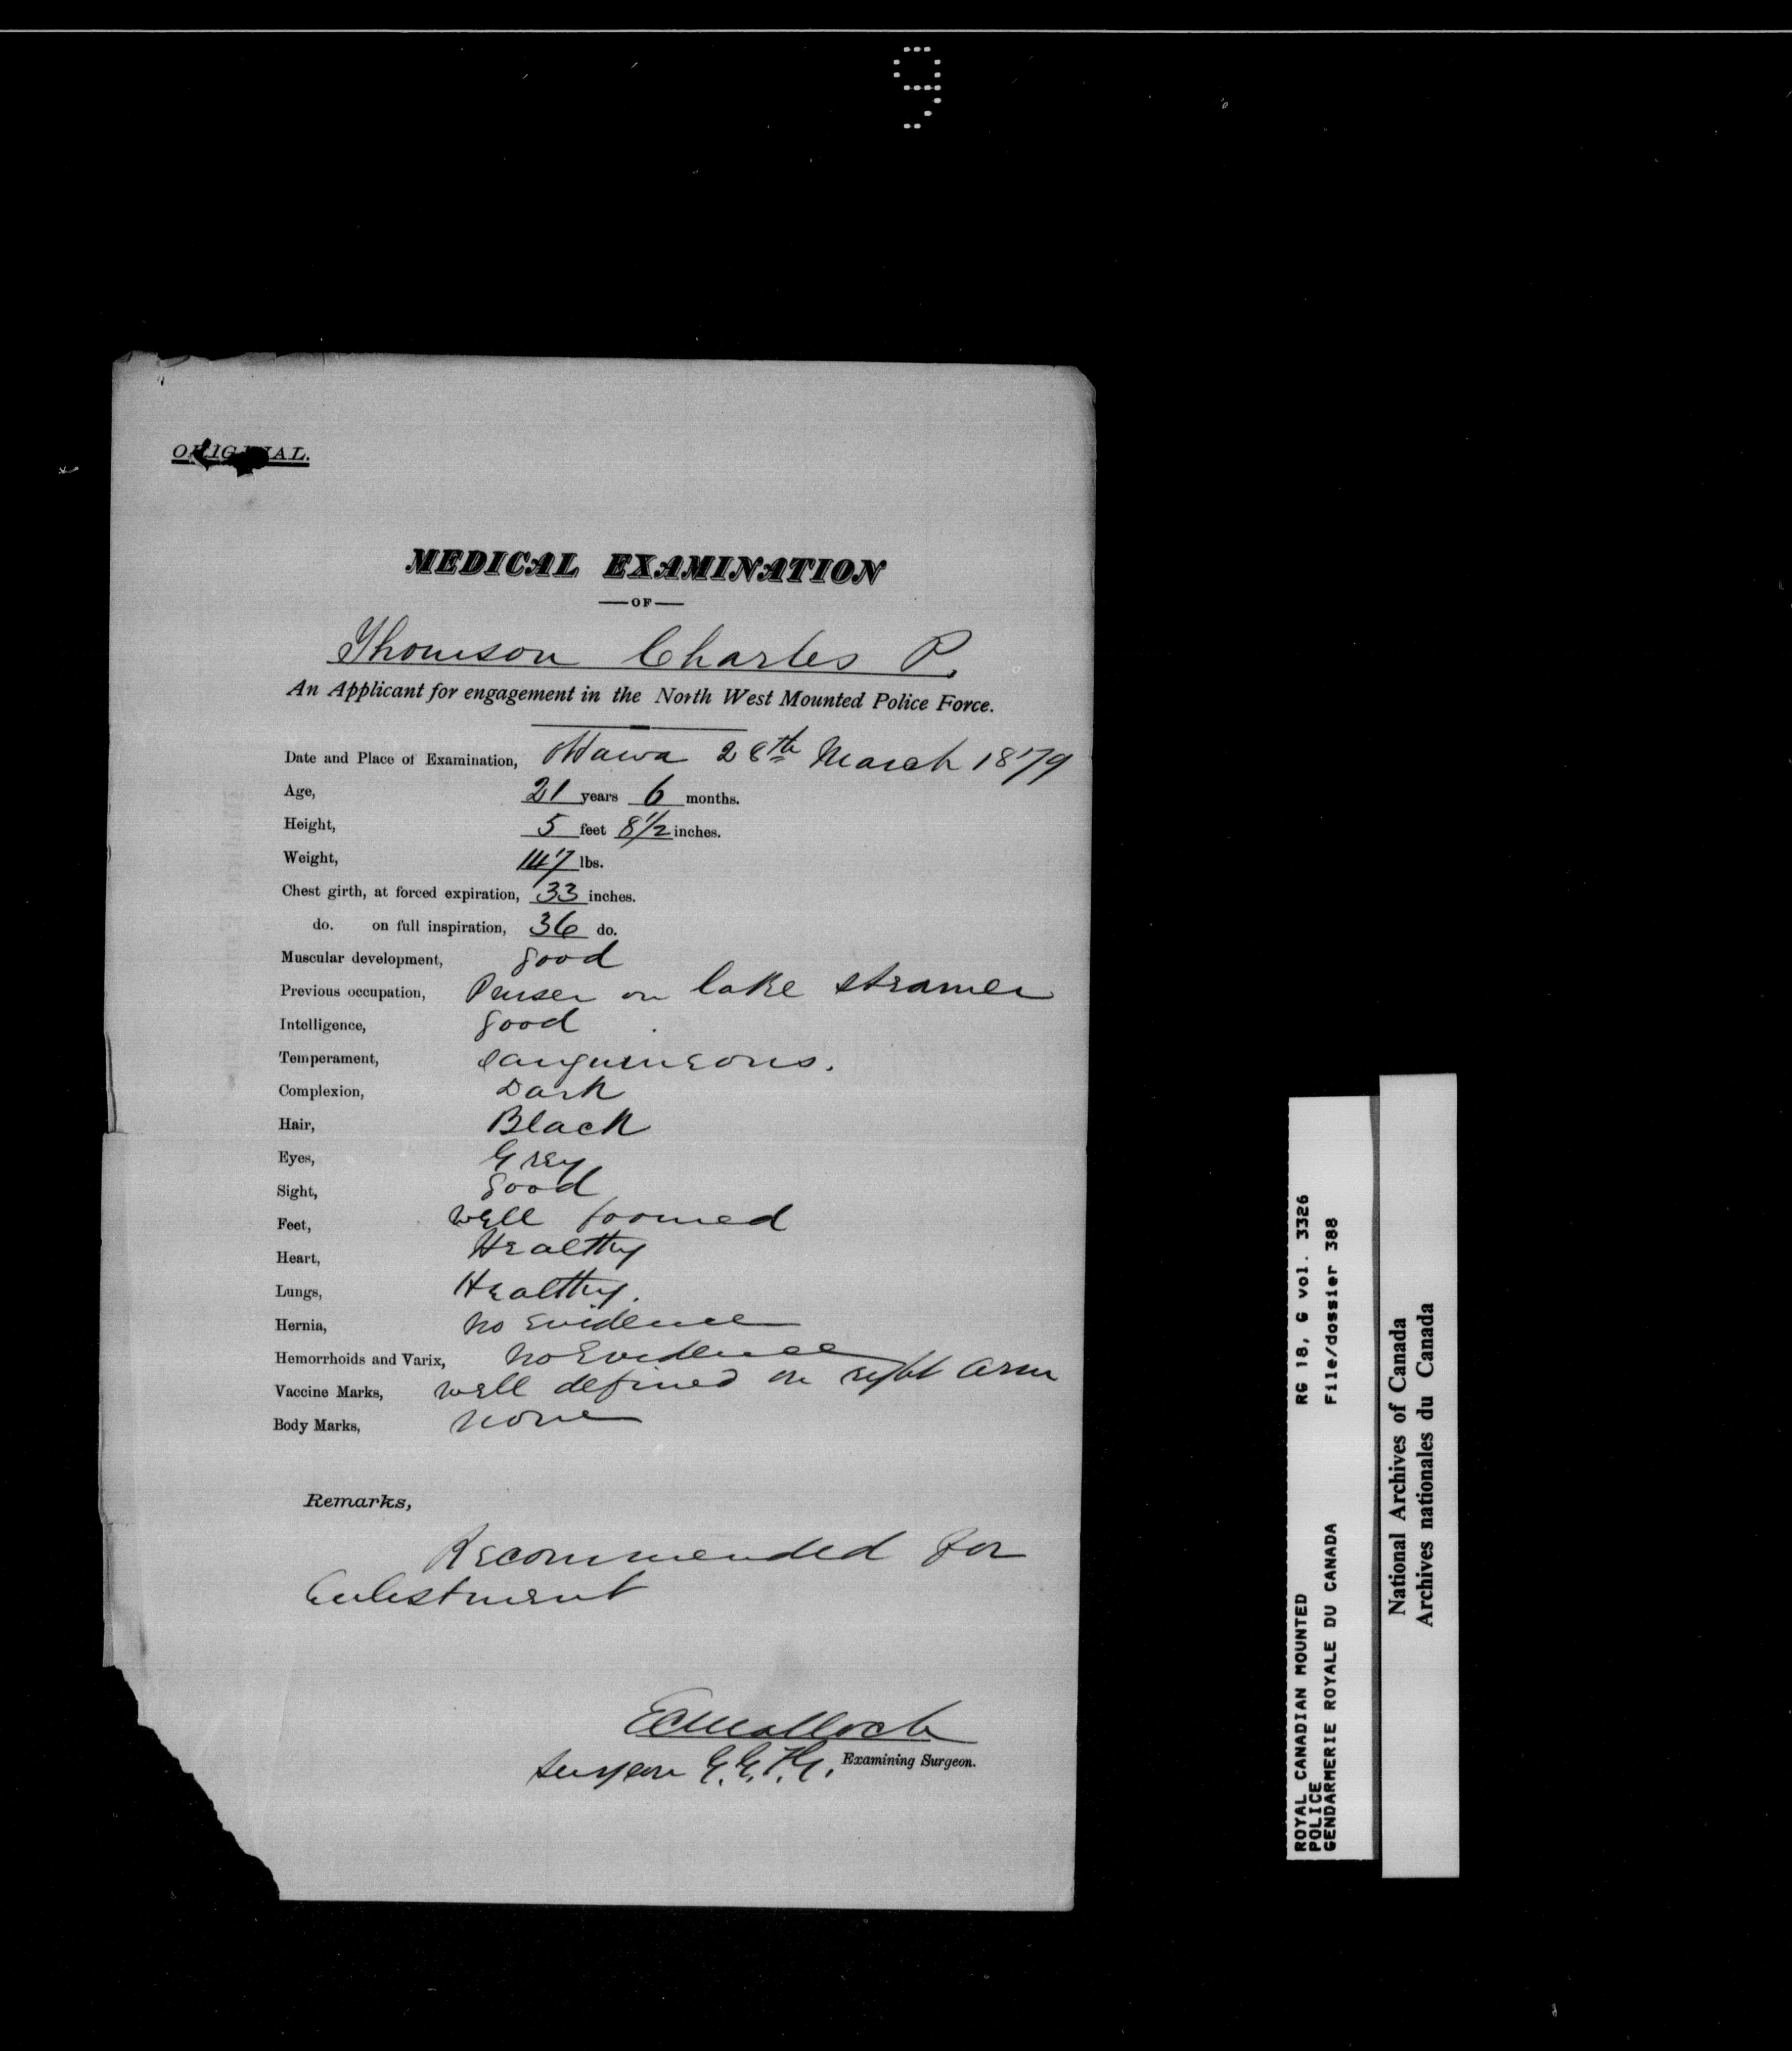 9
ORIGINAL.
MEDICAL EXAMINATION
—OF—
Thomson Charles P.
An Applicant for engagement in the North West Mounted Police Force.
Date and Place of Examination, Ottawa 28th March 1879
Age, 21 years 6 months.
Height, 5 feet 8 1/2 inches.
Weight, 147 lbs.
Chest girth, at forced expiration, 33 inches.
do. on full inspiration, 36 do.
Muscular development, good
Previous occupation, Purser on lake steamer
Intelligence, good
Temperament, sanguineous.
Complexion, Dark
Hair, Black
Eyes, Grey
Sight, good
Feet, well formed
Heart, Healthy
Lungs, Healthy.
Hernia, no evidence
Hemorrhoids and Varix, no Evidence
Vaccine Marks, well defined on right arm
Body Marks, none
Remarks,
Recommended for
Enlistment
E C Malloch
Surgeon G.G.F.G. Examining Surgeon.
ROYAL CANADIAN MOUNTED RG 18, G vol. 3326
POLICE
GENDARMERIE ROYALE DU CANADA File/dossier 388
National Archives of Canada
Archives nationales du Canada